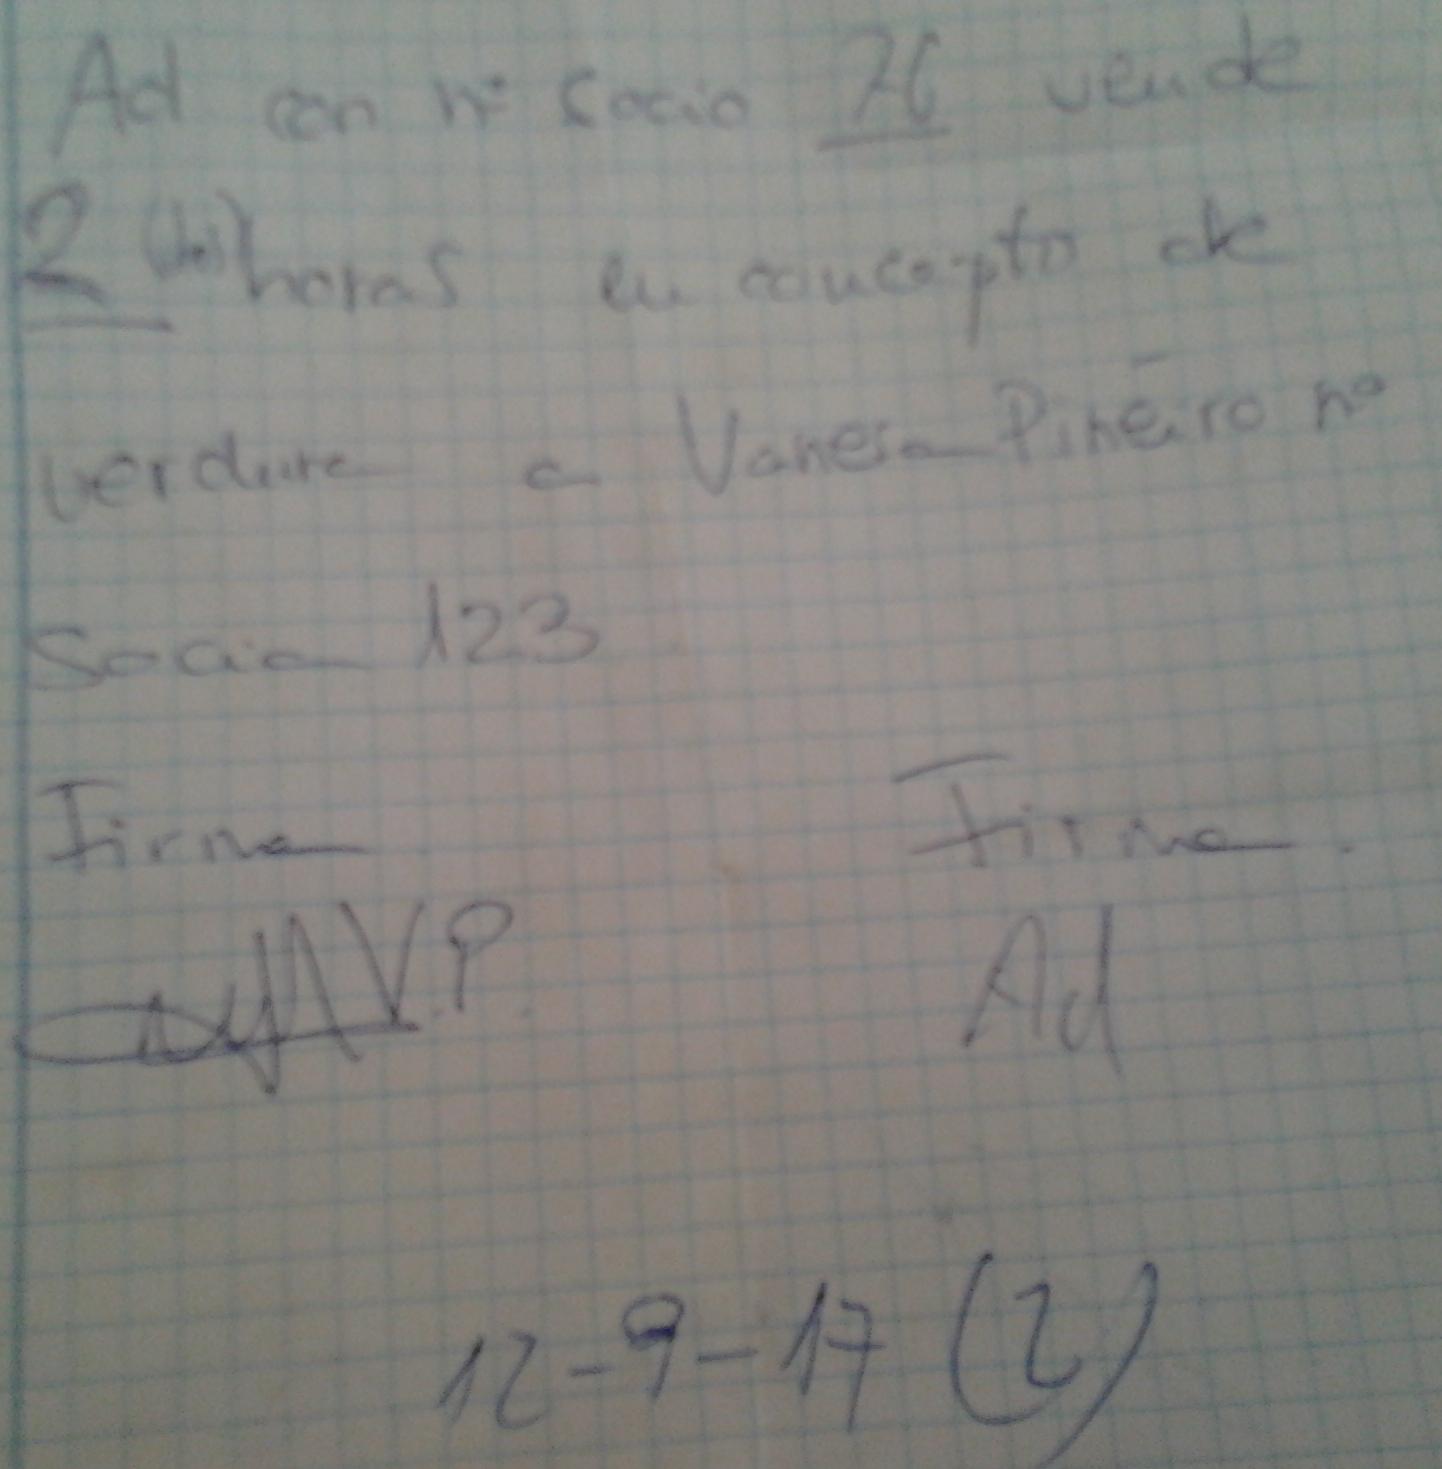 Ad con nº Socio 76 vende
2 (dos) horas en concepto de
verdura a Vanesa Piñeiro nº
Socia 123
Firma Firma.
V.P. Ad
12-9-17 (2)